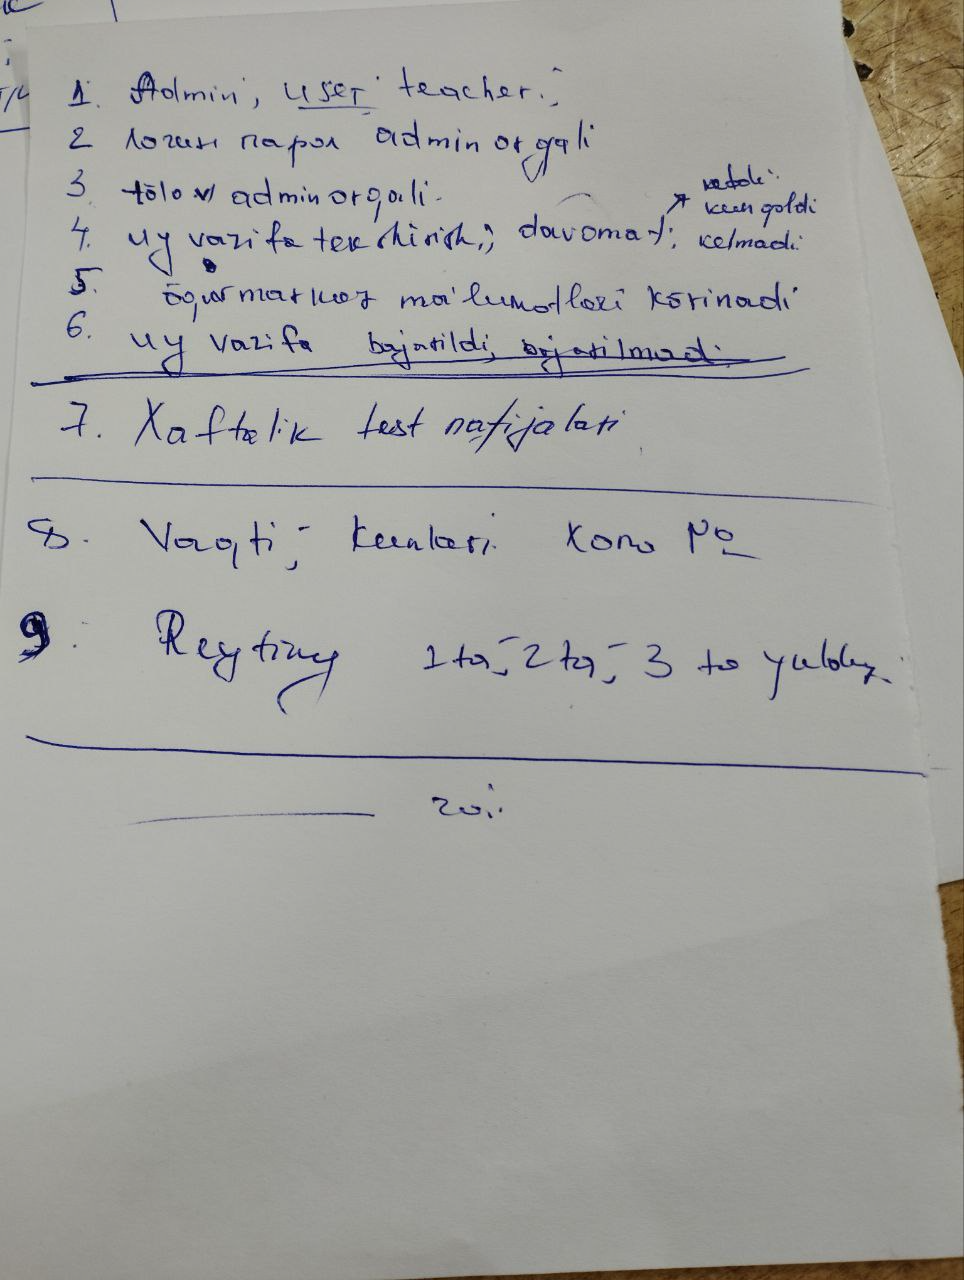 1. Admin, user teacher.,
2 логин парол admin orqali
3 tōlov admin orqali.
4. uy vazifa tekshirish,; davomat;
keldi.
kech qoldi
kelmadi
5. ōquv markaz ma'lumotlari kōrinadi
6. uy vazifa bajarildi, bajarilmadi.
7. Xaftalik test natijalari
8. Vaqti; kunlari. Xona №
9. Reyting 1 ta, 2 ta, 3 ta yulduz.